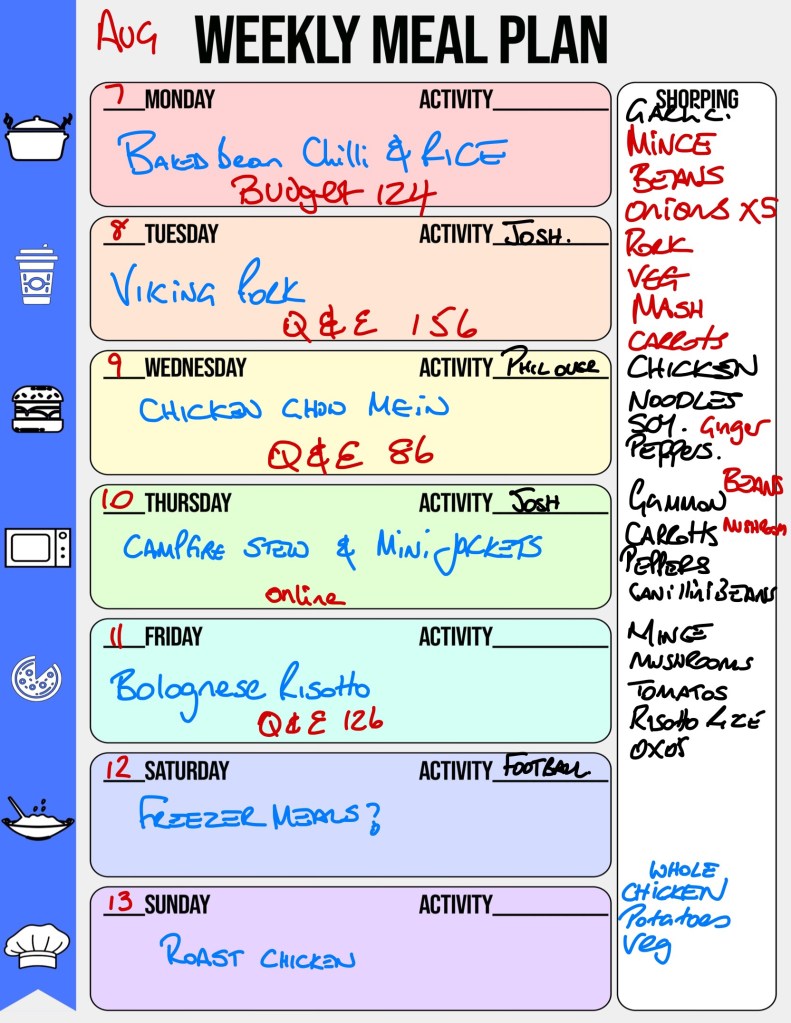 Aug WEEKLY MEAL PLAN
7 MONDAY ACTIVITY
Baked bean Chilli & Rice
Budget 124
8 TUESDAY ACTIVITY Josh.
Viking Pork
Q & E 156
9 WEDNESDAY ACTIVITY Phil over
Chicken Chow Mein
Q & E 86
10 THURSDAY ACTIVITY Josh
Campfire Stew & Mini-Jackets
online
11 FRIDAY ACTIVITY
Bolognese Risotto
Q & E 126
12 SATURDAY ACTIVITY Football
Freezer Meals?
13 SUNDAY ACTIVITY
Roast Chicken
SHOPPING
Garlic.
Mince
Beans
Onions x5
Pork
Veg
Mash
Carrots
Chicken
Noodles
Soy. Ginger
Peppers.
Gammon Beans
Carrotts Mushroom
Peppers
Canillini Beans
Mince
Mushrooms
Tomatos
Risotto Rize
Oxos
Whole
Chicken
Potatoes
Veg